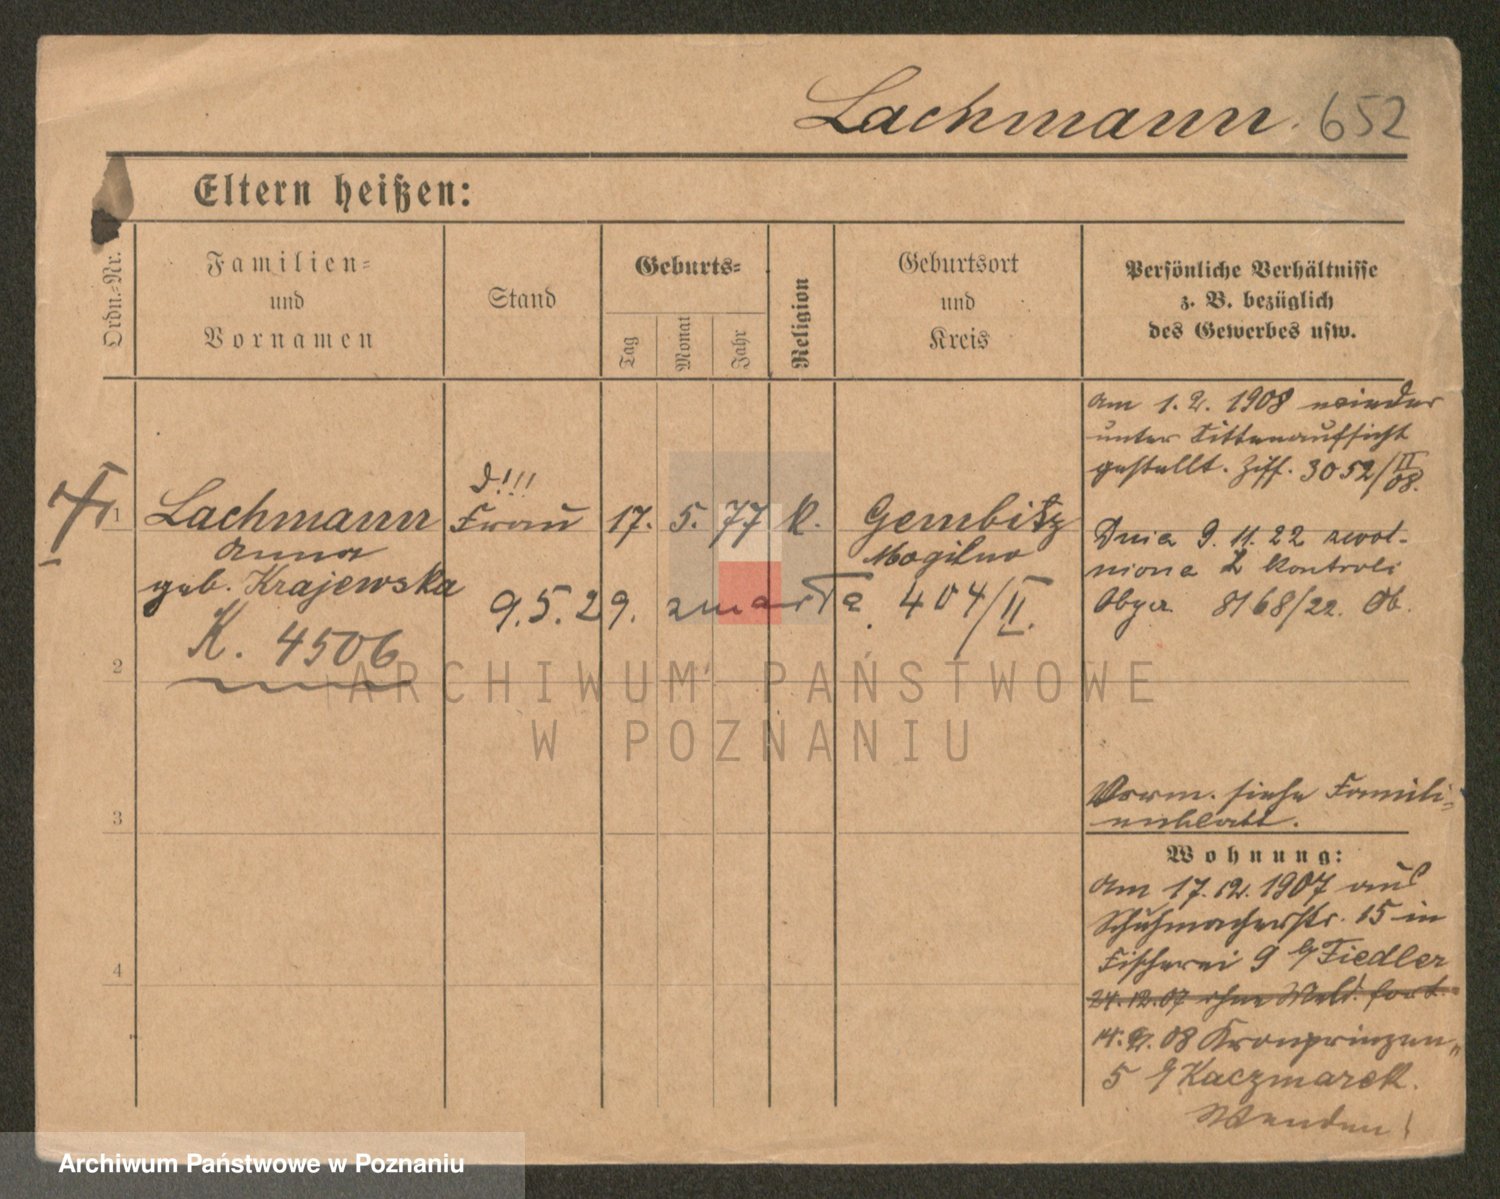 Lachmann. 652
Eltern heißen:
Ordn.-Nr.
Familien-
und
Vornamen
Stand
Geburts-
Tag
Monat
Jahr
Religion
Geburtsort
und
Kreis
Persönliche Verhältnisse
z. B. bezüglich
des Gewerbes usw.
am 1. 2. 1908 wieder
unter Sittenaufsicht
gestellt. Ziff. 3052/II
08.
D!!!
1 Lachmann Frau 17. 5. 77 k. Gembitz
Anna Mogilno
geb. Krajewska
9.5.29. zmarła 404/II.
K. 4506
Dnia 9. 11. 22 zwol-
niona z kontroli
Obycz. 8168/22. Ob.
2
ARCHIWUM PAŃSTWOWE
W POZNANIU
Verm. siehe Famili-
enblatt.
3
Wohnung:
am 17.12.1907 aus
Schuhmacherstr. 15 in
Fischerei 9 b/Fiedler
24.12.07 ohne Meld. fort.
14. 2. 08 Kronprinzen-
5 b/Kaczmarek.
Wenden!
4
Archiwum Państwowe w Poznaniu